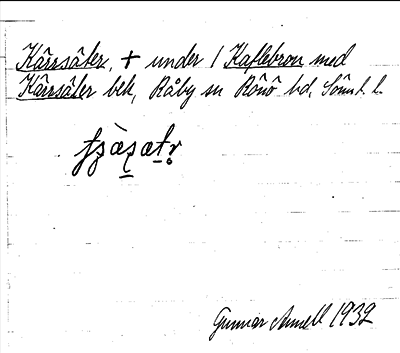 Kärrsäter, + under 1 Kaflebron med
Kärrsäter bek, Råby sn Rönö hd. Söml. l.
Gunnar Annell 1932